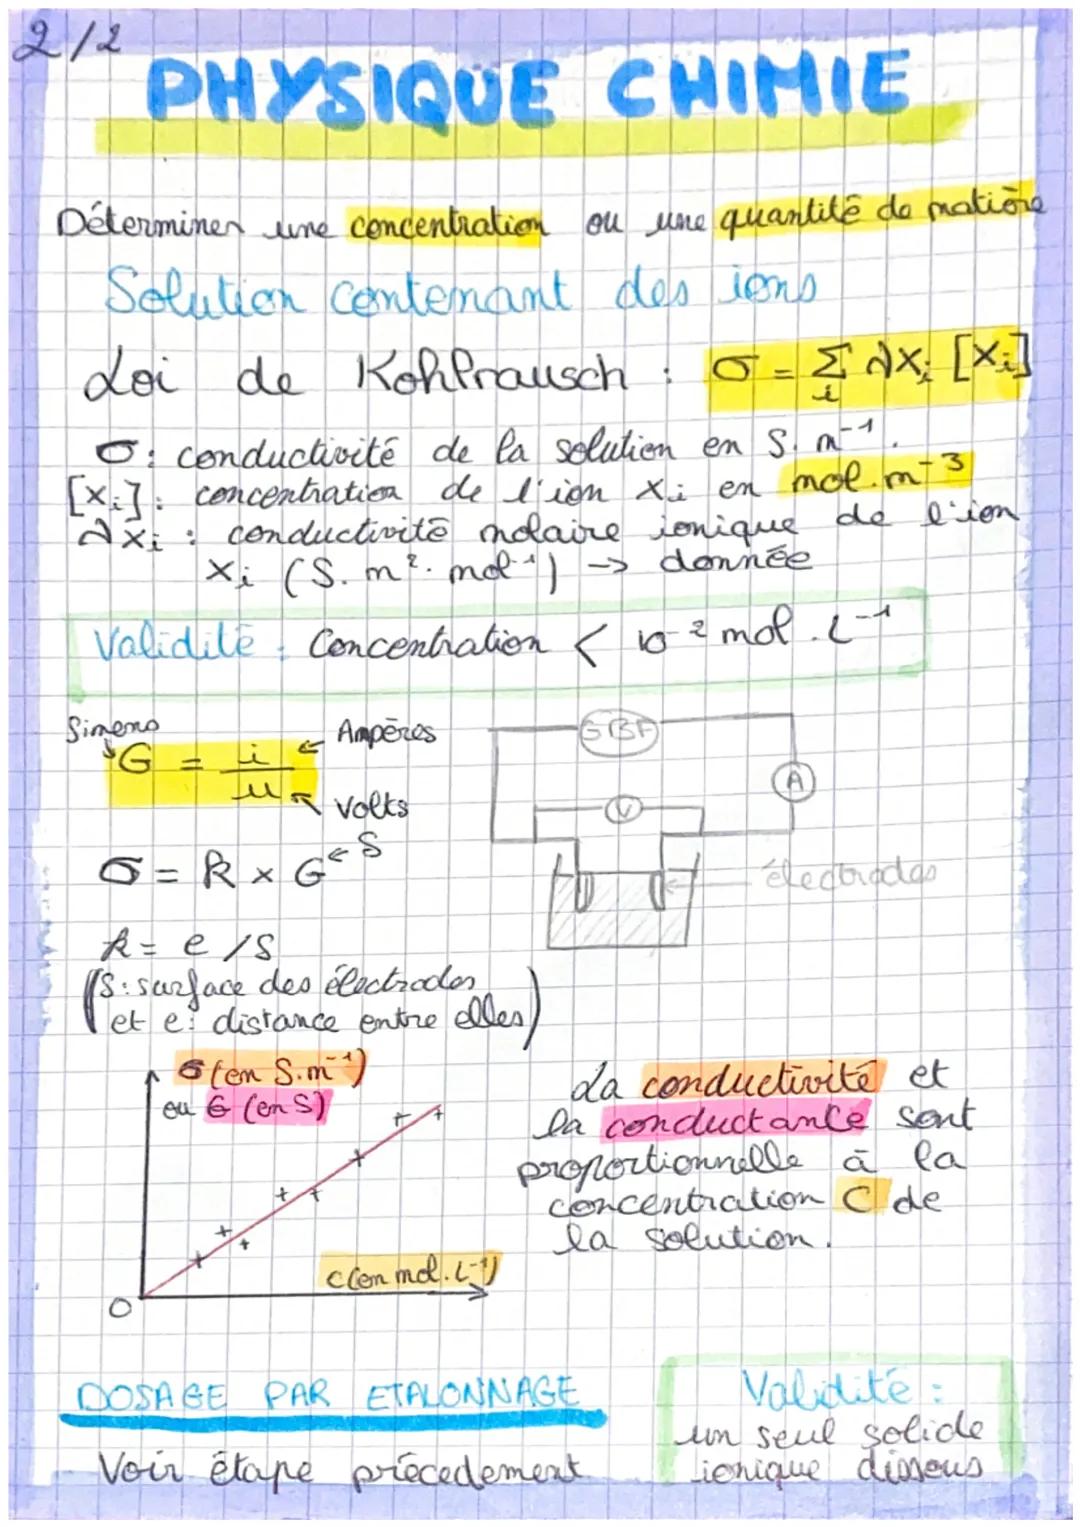 2/2
PHYSIQUE CHIMIE
Déterminer une concentration ou une quantité de matière
Solution contenant des ions
Loi de Kohlrausch : σ = Σ λXi [Xi]
i
σ : conductivité de la solution en S.m⁻¹.
[Xi] : concentration de l'ion Xi en mol.m⁻³
λXi : conductivité molaire ionique de l'ion
Xi (S.m².mol⁻¹) → donnée
Validité : Concentration < 10⁻² mol.L⁻¹
Simens
G = i/u
Ampères
Volts
GBF
A
V
électrodes
σ = k × G ← S
k = e/S
(S : surface des électrodes
et e : distance entre elles)
σ (en S.m⁻¹)
ou G (en S)
C (en mol.L⁻¹)
O
La conductivité et
la conductance sont
proportionnelle à la
concentration C de
la solution.
DOSAGE PAR ETALONNAGE
Voir étape précedement
Validité :
un seul solide
ionique dissous